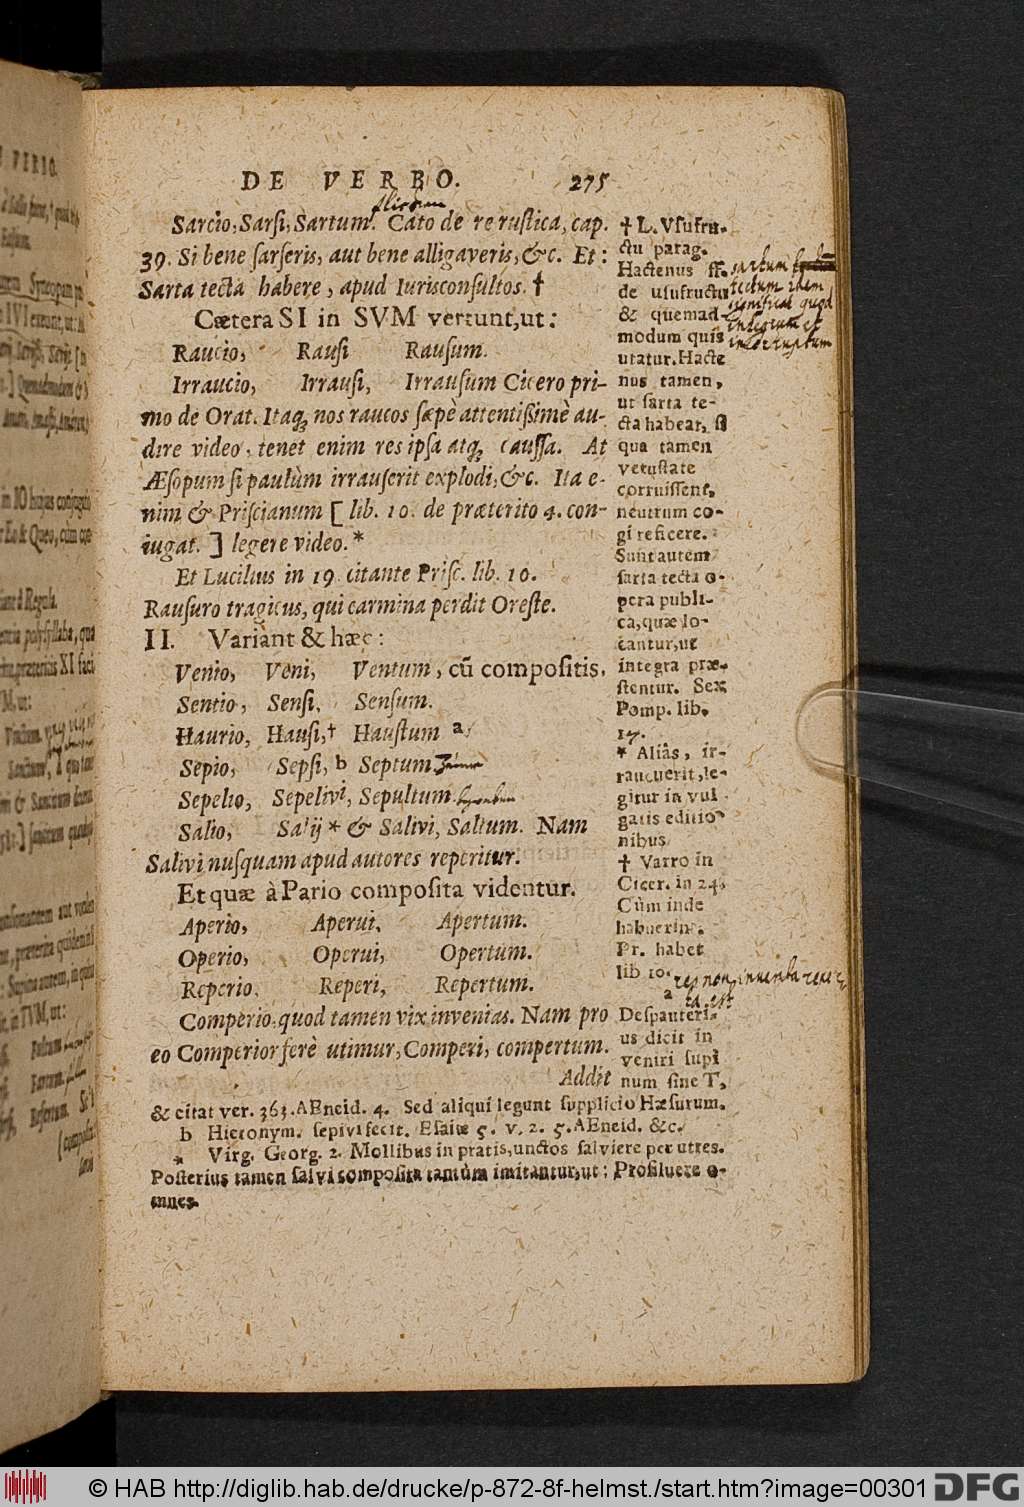 DE VERBO. 275
Sarcio, Sarsi, Sartum. Cato de re rustica, cap.
39. Si bene sarseris, aut bene alligaveris, &c. Et:
Sarta tecta habere, apud Iurisconsultos. †
Cætera SI in SVM vertunt, ut:
Raucio, Rausi Rausum.
Irraucio, Irrausi, Irrausum Cicero pri-
mo de Orat. Itaq; nos raucos sæpè attentißimè au-
dire video, tenet enim res ipsa atq; caussa. At
Æsopum si paulùm irrauserit explodi, &c. Ita e-
nim & Priscianum [ lib. 10. de præterito 4. con-
iugat. ] legere video. *
Et Lucilius in 19. citante Prisc. lib. 10.
Rausuro tragicus, qui carmina perdit Oreste.
II. Variant & hæc:
Venio, Veni, Ventum, cū compositis.
Sentio, Sensi, Sensum.
Haurio, Hausi, † Haustum a
Sepio, Sepsi, b Septum
Sepelio, Sepelivi, Sepultum
Salio, Salij * & Salivi, Saltum. Nam
Salivi nusquam apud autores reperitur.
Et quæ à Pario composita videntur.
Aperio, Aperui, Apertum.
Operio, Operui, Opertum.
Reperio, Reperi, Repertum.
Comperio, quod tamen vix invenias. Nam pro
eo Comperior ferè utimur, Comperi, compertum.
Addit
† L. Vsufru-
ctu parag.
Hactenus ff.
de usufructu
& quemad-
modum quis
utatur. Hacte
nus tamen,
ut sarta te-
cta habeat, si
qua tamen
vetustate
corruissent,
neutrum co-
gi reficere.
Sunt autem
sarta tecta o-
pera publi-
ca, quæ lo-
cantur, ut
integra præ-
stentur. Sex.
Pomp. lib.
17.
* Aliâs, ir-
raucuerit, le-
gitur in vul
gatis editio-
nibus
† Varro in
Cicer. in 24.
Cùm inde
habuerins.
Pr. habet
lib 10.
a
Despauteri-
us dicit in
veniri supi
num sine T,
sartum
tectum idem
significat quod
integrum et
incorruptum
& citat ver. 363. AEneid. 4. Sed aliqui legunt supplicio Hæsurum.
b Hieronym. sepivi fecit. Esaiæ 5. v. 2. 5. AEneid. &c.
* Virg. Georg. 2. Mollibus in pratis, unctos salviere per utres.
Posterius tamen salvi composita tantùm imitantur, ut: Prosiluere o-
mnes.
© HAB http://diglib.hab.de/drucke/p-872-8f-helmst./start.htm?image=00301
DFG